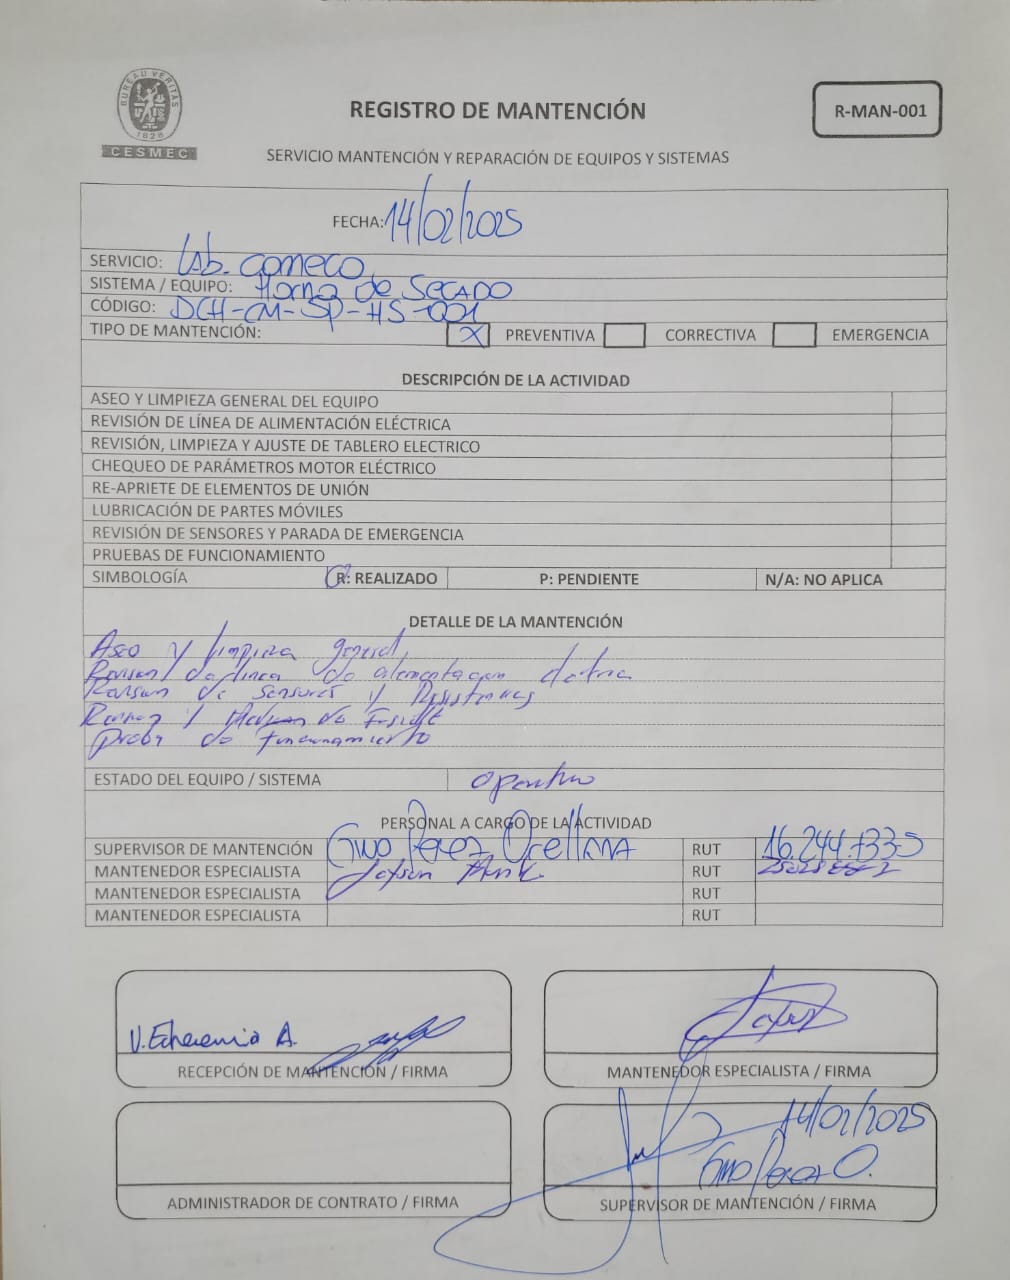 BUREAU VERITAS
1828
CESMEC
REGISTRO DE MANTENCIÓN
R-MAN-001
SERVICIO MANTENCIÓN Y REPARACIÓN DE EQUIPOS Y SISTEMAS
FECHA: 14/02/2025
SERVICIO: Lab. Comeco
SISTEMA / EQUIPO: Horno de SECADO
CÓDIGO: DCH-CM-SP-HS-001
TIPO DE MANTENCIÓN: X PREVENTIVA CORRECTIVA EMERGENCIA
DESCRIPCIÓN DE LA ACTIVIDAD
ASEO Y LIMPIEZA GENERAL DEL EQUIPO
REVISIÓN DE LÍNEA DE ALIMENTACIÓN ELÉCTRICA
REVISIÓN, LIMPIEZA Y AJUSTE DE TABLERO ELECTRICO
CHEQUEO DE PARÁMETROS MOTOR ELÉCTRICO
RE-APRIETE DE ELEMENTOS DE UNIÓN
LUBRICACIÓN DE PARTES MÓVILES
REVISIÓN DE SENSORES Y PARADA DE EMERGENCIA
PRUEBAS DE FUNCIONAMIENTO
SIMBOLOGÍA R: REALIZADO P: PENDIENTE N/A: NO APLICA
DETALLE DE LA MANTENCIÓN
Aseo y limpieza general
de linea de alimentacion
de sensores y
y de
de funcionamiento
ESTADO DEL EQUIPO / SISTEMA operativo
PERSONAL A CARGO DE LA ACTIVIDAD
SUPERVISOR DE MANTENCIÓN Gino Perez Orellana RUT 16.244.733-5
MANTENEDOR ESPECIALISTA RUT
MANTENEDOR ESPECIALISTA RUT
MANTENEDOR ESPECIALISTA RUT
V. Echeverria A.
RECEPCIÓN DE MANTENCIÓN / FIRMA
MANTENEDOR ESPECIALISTA / FIRMA
14/02/2025
Gino Perez O.
ADMINISTRADOR DE CONTRATO / FIRMA
SUPERVISOR DE MANTENCIÓN / FIRMA